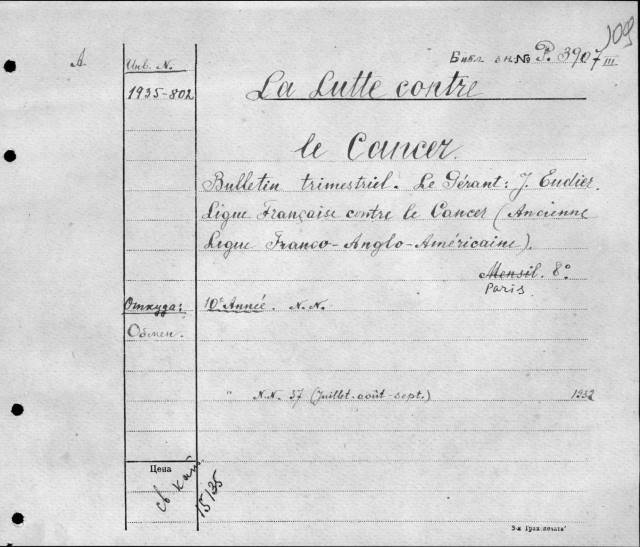 109
A
Инв. N.
Библ зн.№ P. 3907 III
1935-802
La Lutte contre
le Cancer.
Bulletin trimestriel. Le Gérant: J. Eudier.
Ligue Française contre le Cancer (Ancienne
Ligue Franco-Anglo-Américaine).
Mensil. 8°
Paris
Откуда:
10e Année. N.N.
Обмен.
" N.N. 37 (Juillet-août-sept.) 1932
Цена
св кат.
15135